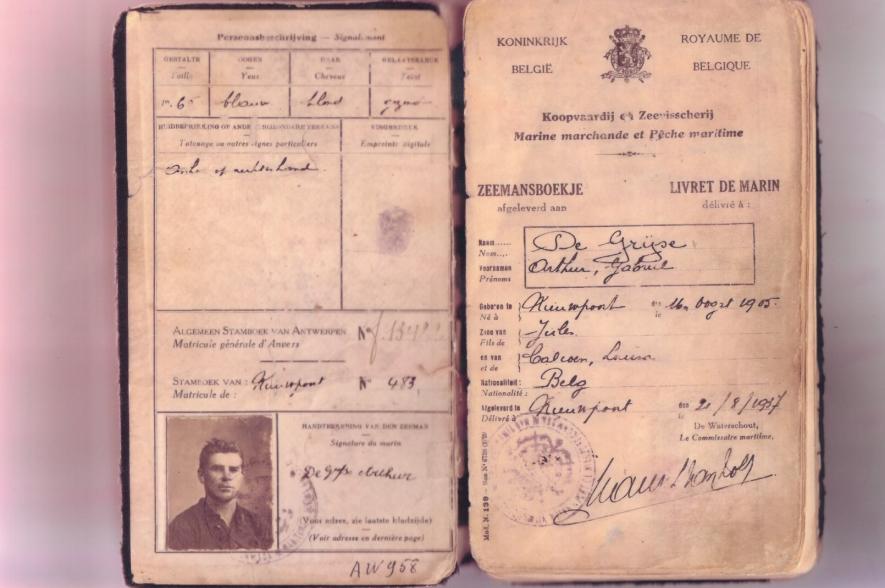 Persoonsbeschrijving — Signalement
GESTALTE
Taille
OOGEN
Yeux
HAAR
Cheveux
GELAATSKLEUR
Teint
blauw
blond
Tatouage ou autres signes particuliers
VINGERDRUK
Empreinte digitale
ALGEMEEN STAMBOEK VAN ANTWERPEN
Matricule générale d'Anvers
Nº
STAMBOEK VAN : Nieuwpoort Nº 483
Matricule de :
HANDTEEKENING VAN DEN ZEEMAN
Signature du marin
(Voor adres, zie laatste bladzijde)
(Voir adresse en dernière page)
AW958
KONINKRIJK
BELGIË
ROYAUME DE
BELGIQUE
Koopvaardij en Zeevisscherij
Marine marchande et Pêche maritime
ZEEMANSBOEKJE
afgeleverd aan
LIVRET DE MARIN
délivré à :
Naam...... De Gryse
Nom....
Voornamen Arthur, Gabriel
Prénoms
Geboren te Nieuwpoort den 16 Oogst 1905
Né à le
Zoon van Jules
Fils de
en van Calcoen, Louisa
et de
Nationaliteit : Belg
Nationalité :
Afgeleverd te Nieuwpoort den 21/8/1937
Délivré à le
De Waterschout,
Le Commissaire maritime,